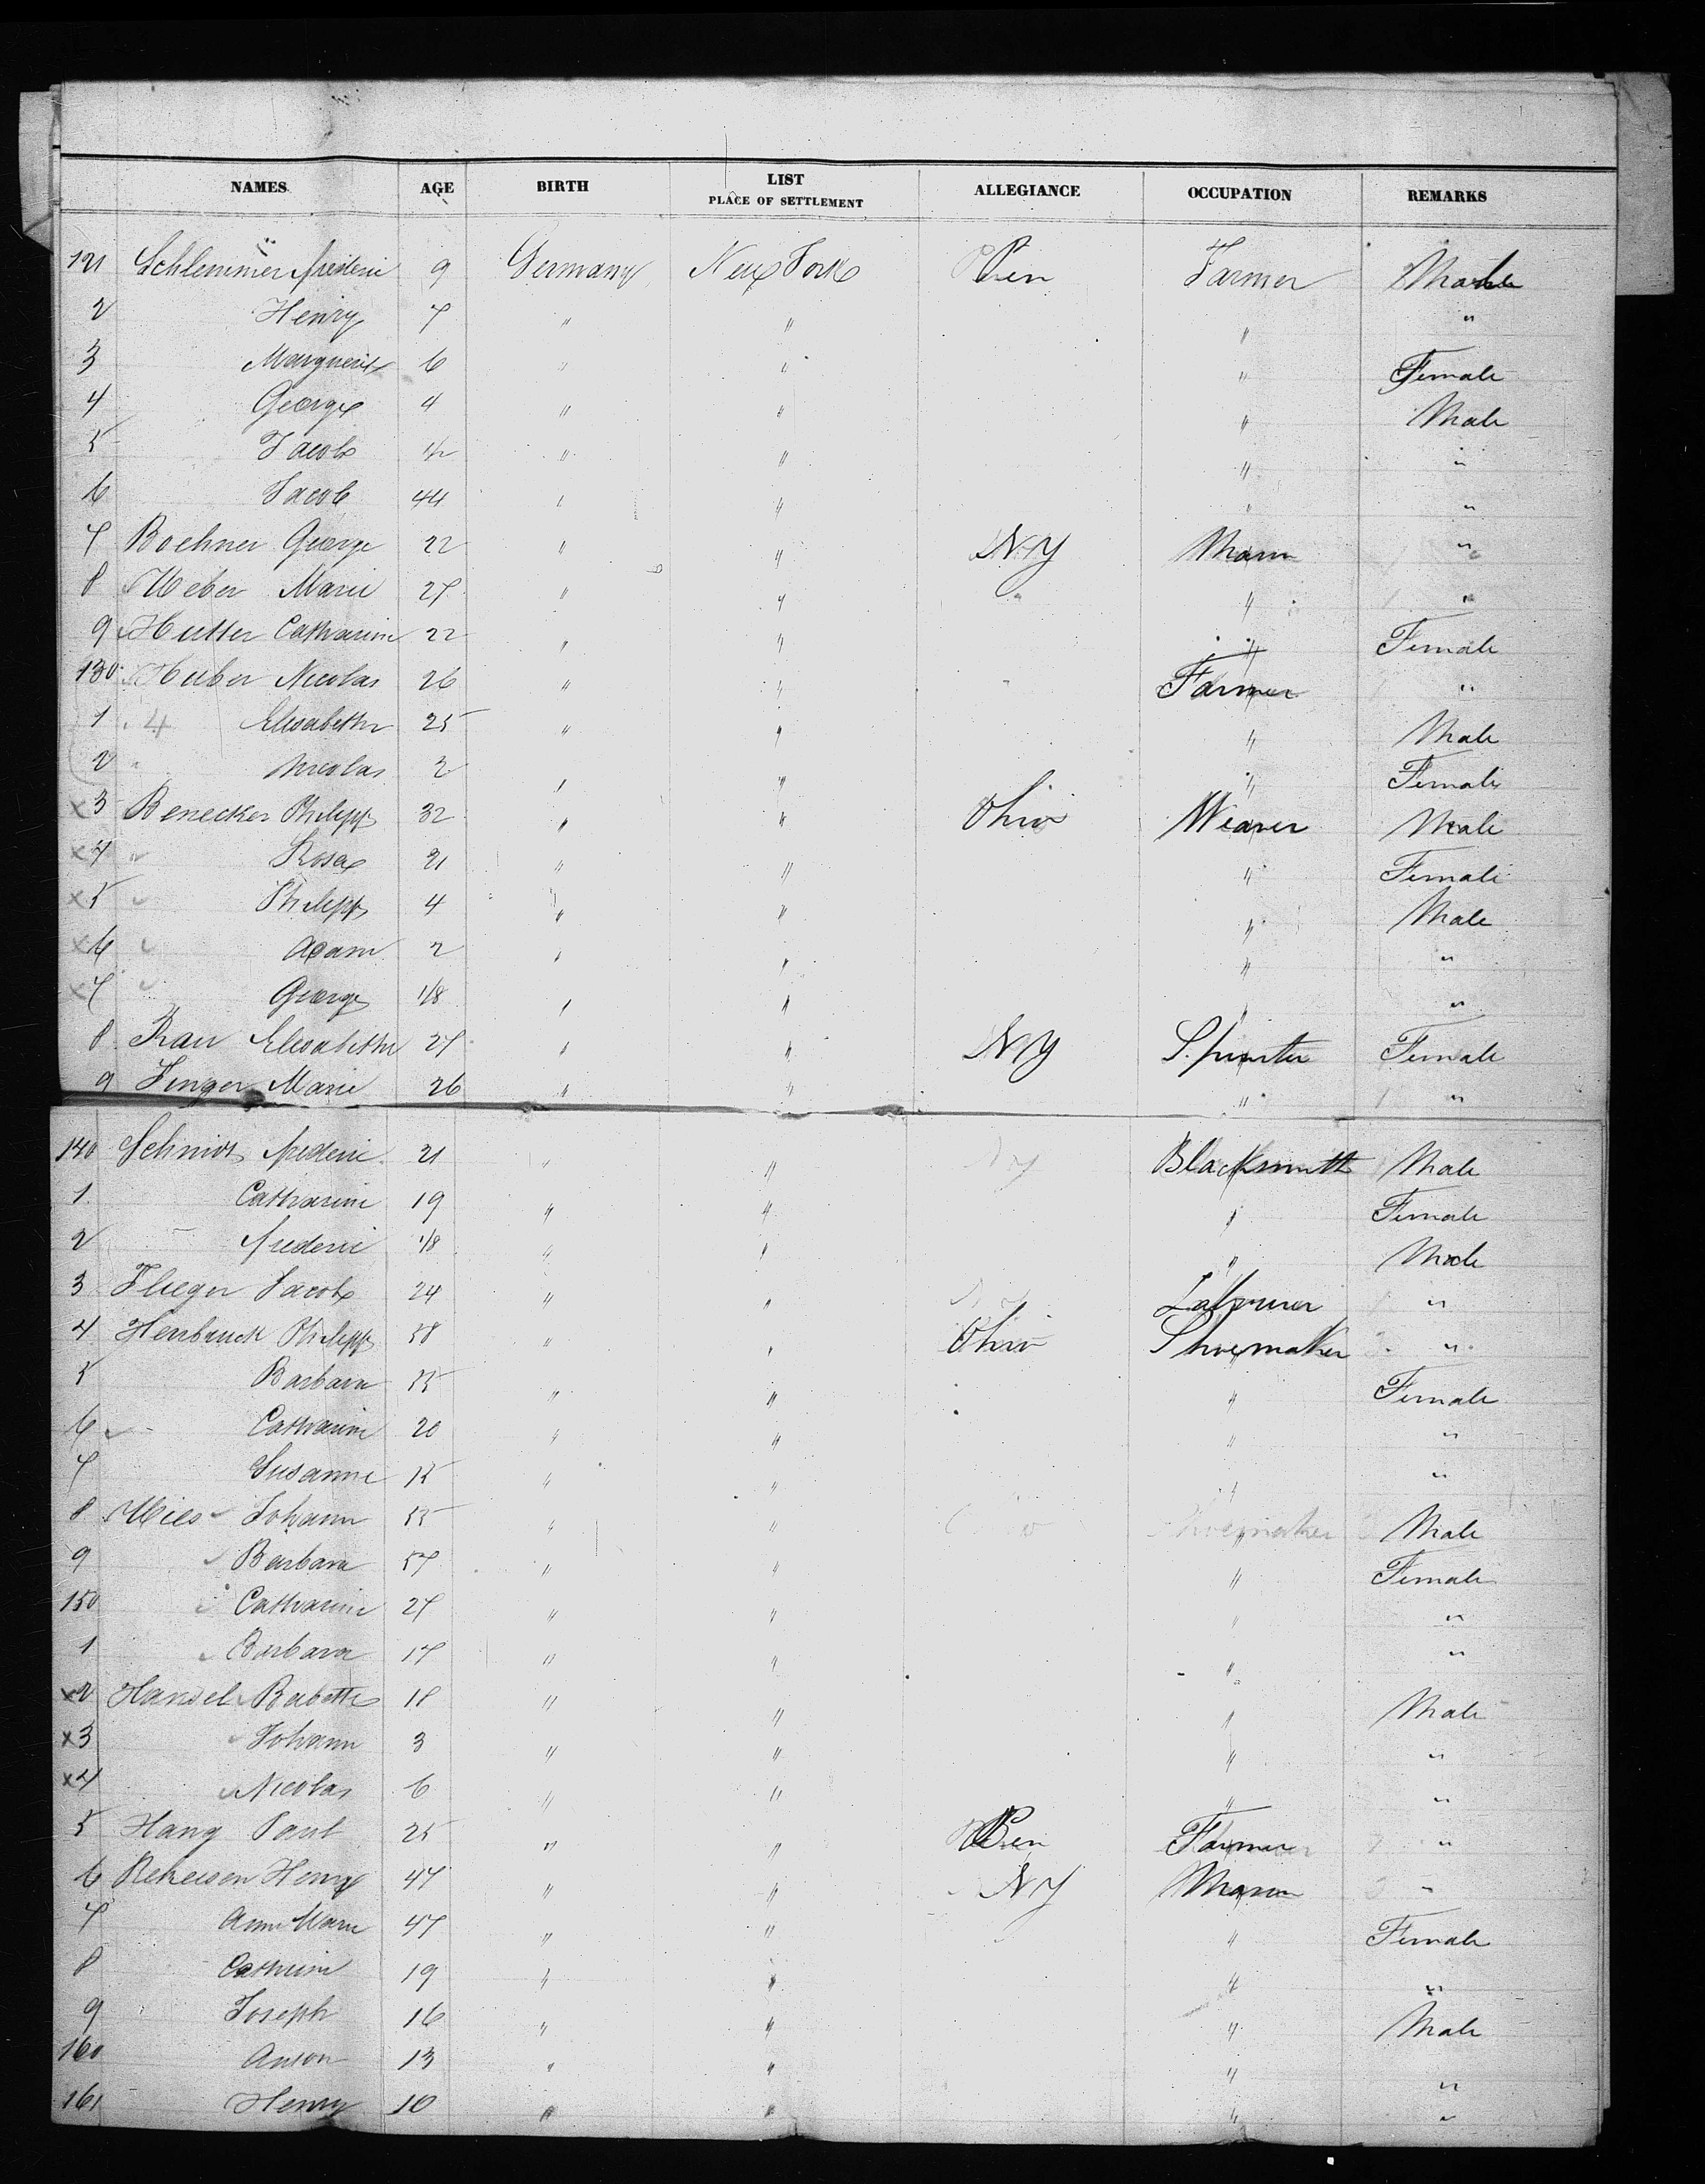 NAMES AGE BIRTH LIST PLACE OF SETTLEMENT ALLEGIANCE OCCUPATION REMARKS
121 Schlemmer frederic 9 Germany New York Pen Farmer Male
2 Henry 7 " " " "
3 Marguerit 6 " " " Female
4 George 4 " " " Male
5 Jacob " " " "
6 Jacob 44 " " " "
7 Boehner George 22 " " NY Mason "
8 Weber Marie 27 " " " "
9 Hutter Catharine 22 " " " Female
130 Huber Nicolas 26 " " Farmer "
1 " Elisabeth 25 " " " Male
2 " Nicolas 2 " " " Female
x3 Benecker Philipp 32 " " Ohio Weaver Male
x4 " Rosa 31 " " " Female
x5 " Philipp 4 " " " Male
x6 " Adam 2 " " " "
x7 " George 1/8 " " " "
8 Rau Elisabeth 27 " " NY Spinster Female
9 Finger Marie 26 " " " "
140 Schmidt frederic 31 " " NY Blacksmith Male
1 Catharine 19 " " " Female
2 frederic 1/8 " " " Male
3 Flieger Jacob 24 " " Labourer "
4 Philipp 58 " " Ohio Shoemaker "
5 Barbara 55 " " " Female
6 Catharine 20 " " " "
7 Susanne 15 " " " "
8 Johann 55 " " Shoemaker Male
9 Barbara 57 " " " Female
150 Catharine 27 " " " "
1 Barbara 17 " " " "
x2 Babette 18 " " " Male
x3 Johann 3 " " " "
x4 Nicolas 6 " " " "
5 Hang Paul 25 " " Pen Farmer "
6 Henry 47 " " NY Mason "
7 Ann Marie 47 " " " Female
8 Cathrine 19 " " " "
9 Joseph 16 " " " Male
160 Anton 13 " " " "
161 Henry 10 " " " "